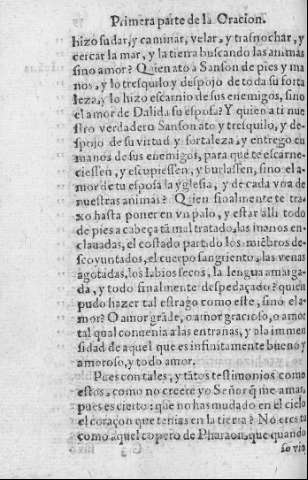 Primera parte de la Oracion.
hizo sudar, y caminar, velar, y trasnochar, y
cercar la mar, y la tierra buscando las animas
sino amor? Quien ato a Sanson de pies y ma
nos, y lo tresquilo y despojo de toda su forta
leza, y lo hizo escarnio de sus enemigos, sino
el amor de Dalida su esposa? Y quien a ti nue
stro verdadero Sanson ato y tresquilo, y de-
spojo de su virtud y fortaleza, y entrego en
manos de sus enemigos, para que te escarne-
ciessen, y escupiessen, y burlassen, sino el a-
mor de tu esposa la yglesia, y de cada vna de
nuestras animas? Quien finalmente te tra-
xo hasta poner en vn palo, y estar alli todo
de pies a cabeça tã mal tratado, las manos en-
clauadas, el costado partido los miẽbros de-
scoyuntados, el cuerpo sangriento, las venas
agotadas, los labios secos, la lengua amarga-
da, y todo finalmente despedaçado? quien
pudo hazer tal estrago como este, sino el a-
mor? O amor grãde, o amor gracioso, o amor
tal qual conuenia a las entrañas, y a la immen
sidad de aquel que es infinitamente bueno y
amoroso, y todo amor.
Pues con tales, y tãtos testimonios como
estos, como no creere yo Señor q̃ me amas,
pues es cierto: que no has mudado en el cielo
el coraçon que tenias en la tierra? No eres tu
como aquel copero de Pharaon, que quando
se vio